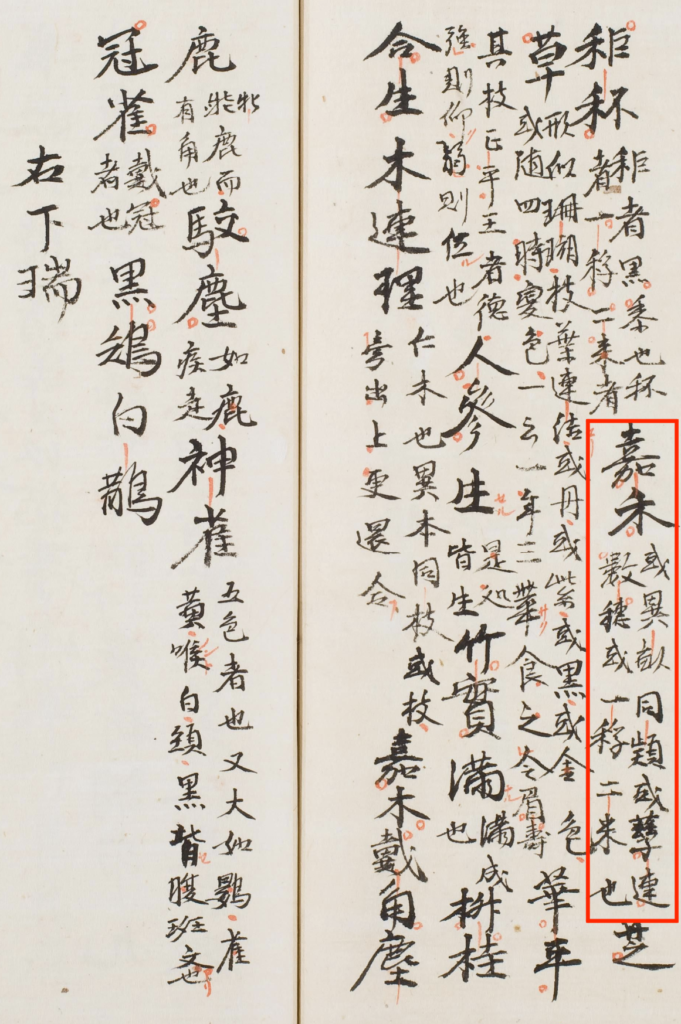 秬秠
秬者黒黍也秠
者一稃二米者
嘉禾
或異畝同頴或孳連
數穂或一稃二米也
芝
草
形似珊瑚枝葉連結或丹或紫或黒或金色
或随四時變色一云一年三華食之令眉壽
華平
其枝正平王者德
强則仰弱則低也
人參生
是処
皆生
竹實満
満成
也
椒桂
合生木連理
仁木也異本同枝或枝
旁出上更還合
嘉木戴角麈
鹿
牝鹿而
有角也
駮麈
如鹿
疾走
神雀
五色者也又大如鷃雀
黄喉白頚黒背腹斑文也
冠雀
戴冠
者也
黒鴙白鵲
右下瑞